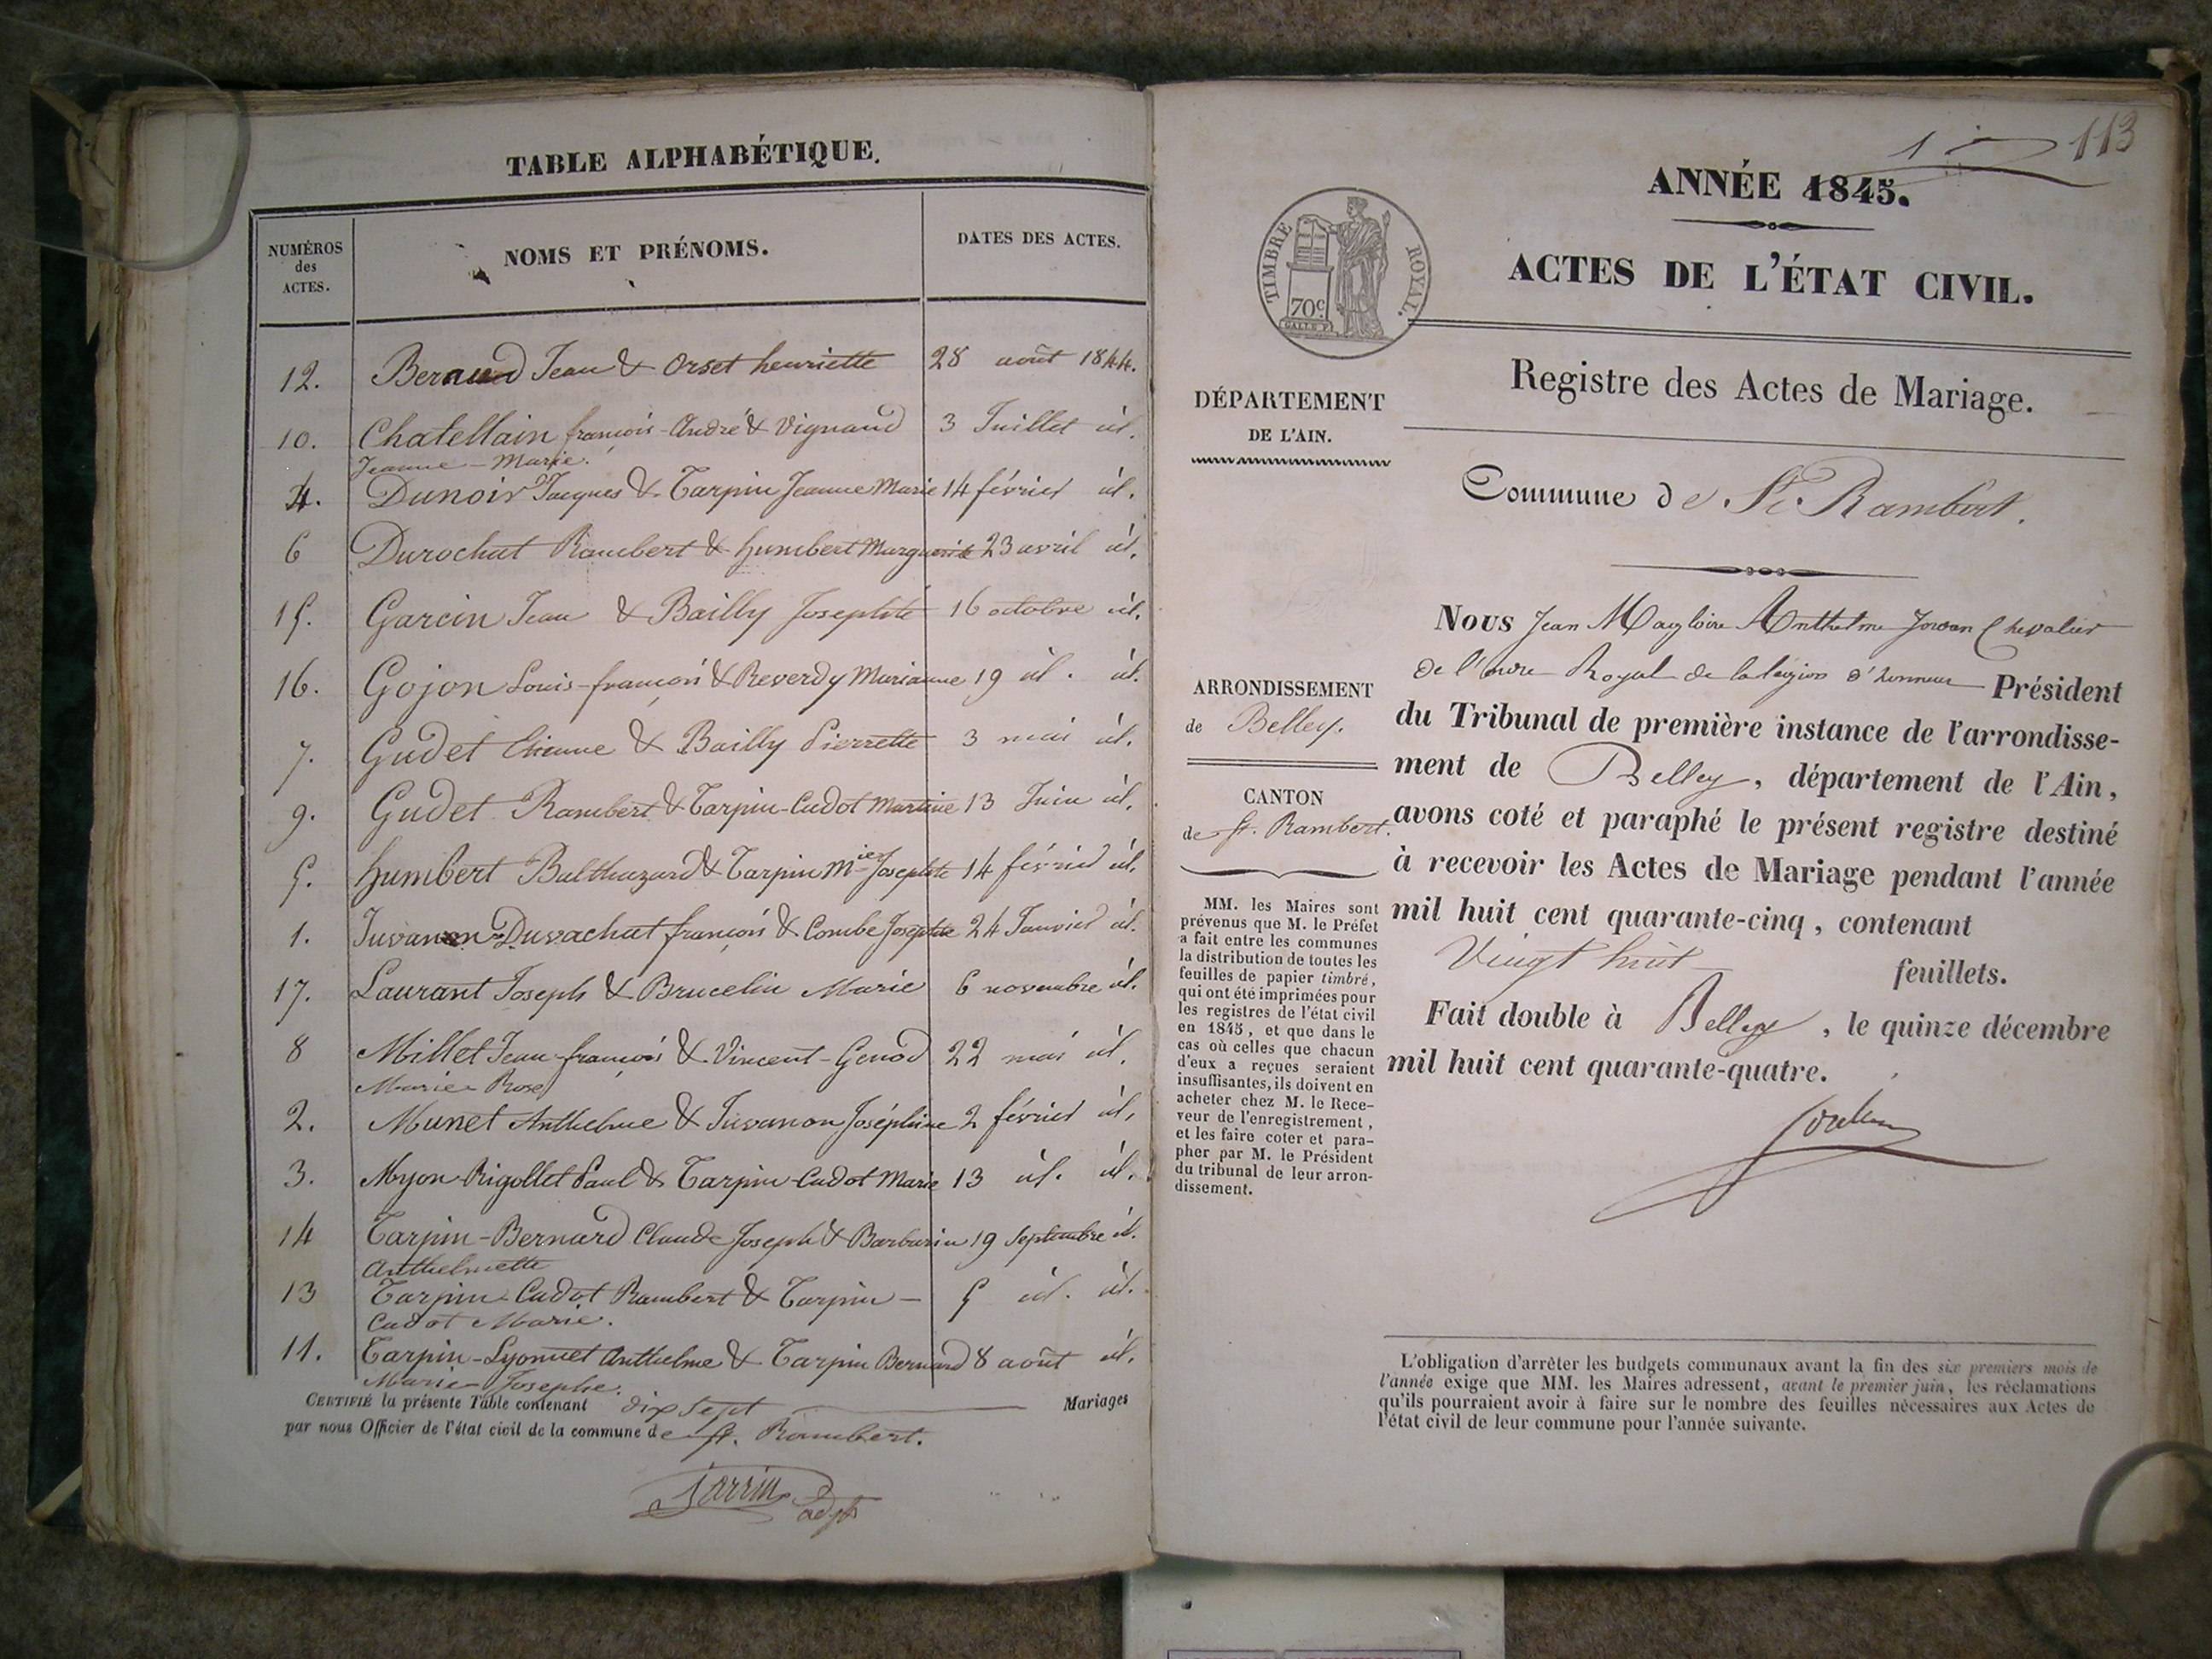 TABLE ALPHABÉTIQUE.
NUMÉROS
des
ACTES.
NOMS ET PRÉNOMS.
DATES DES ACTES.
12. Beraud Jean & Orset henriette 28 août 1844.
10. Chatellain françois-André & Vignaud 3 Juillet id.
Jeanne-Marie.
4. Dunoir Jacques & Tarpin Jeanne Marie 14 février id.
6 Durochat Rambert & humbert Marguerite 23 avril id.
15. Garcin Jean & Bailly Josephte 16 octobre id.
16. Gojon Louis-françois & Reverdy Marianne 19 id. id.
7. Gudet Etienne & Bailly Pierrette 3 mai id.
9. Gudet Rambert & Tarpin-Cadot Martine 13 Juin id.
5. humbert Balthazard & Tarpin Mie Josephte 14 février id.
1. Juvanon-Duvachat françois & Combe Josephte 24 Janvier id.
17. Laurant Joseph & Brucelin Marie 6 novembre id.
8 Millet Jean-françois & Vincent-Genod 22 mai id.
Marie Rose
2. Munet Anthelme & Juvanon Joséphine 2 février id.
3. Myon-Rigollet Paul & Tarpin-Cadot Marie 13 id. id.
14 Tarpin-Bernard Claude Joseph & Barbarin 19 Septembre id.
Anthelmette
13 Tarpin-Cadot Rambert & Tarpin- 5 id. id.
Cadot Marie.
11. Tarpin-Lyonnet Anthelme & Tarpin Bernard 8 août id.
Marie-Josephe.
CERTIFIÉ la présente Table contenant dix sept Mariages
par nous Officier de l'état civil de la commune de St. Rambert.
Jarrin
adjt
113
ANNÉE 1845.
ACTES DE L'ÉTAT CIVIL.
TIMBRE ROYAL.
70c
Registre des Actes de Mariage.
DÉPARTEMENT
DE L'AIN.
Commune de St Rambert.
ARRONDISSEMENT
de Belley.
CANTON
de St. Rambert.
MM. les Maires sont
prévenus que M. le Préfet
a fait entre les communes
la distribution de toutes les
feuilles de papier timbré,
qui ont été imprimées pour
les registres de l'état civil
en 1845, et que dans le
cas où celles que chacun
d'eux a reçues seraient
insuffisantes, ils doivent en
acheter chez M. le Rece-
veur de l'enregistrement,
et les faire coter et para-
pher par M. le Président
du tribunal de leur arron-
dissement.
Nous Jean Magloire Anthelme Chevalier
de l'ordre Royal de la légion d'honneur Président
du Tribunal de première instance de l'arrondisse-
ment de Belley, département de l'Ain,
avons coté et paraphé le présent registre destiné
à recevoir les Actes de Mariage pendant l'année
mil huit cent quarante-cinq, contenant
Vingt huit feuillets.
Fait double à Belley, le quinze décembre
mil huit cent quarante-quatre.
L'obligation d'arrêter les budgets communaux avant la fin des six premiers mois de
l'année exige que MM. les Maires adressent, avant le premier juin, les réclamations
qu'ils pourraient avoir à faire sur le nombre des feuilles nécessaires aux Actes de
l'état civil de leur commune pour l'année suivante.